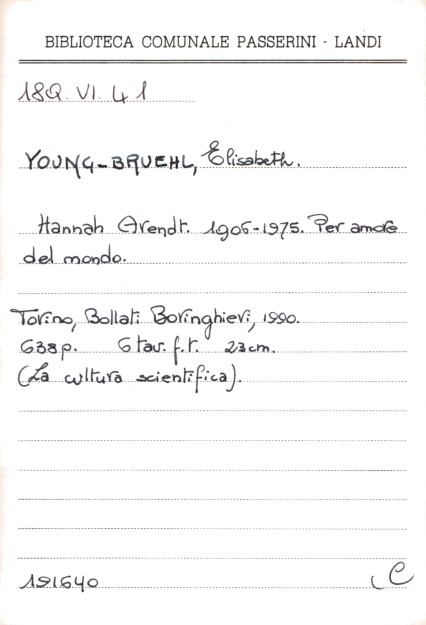 BIBLIOTECA COMUNALE PASSERINI - LANDI
18Q. VI. 41
YOUNG-BRUEHL, Elisabeth.
Hannah Arendt. 1906-1975. Per amore
del mondo.
Torino, Bollati Boringhieri, 1990.
638p. 6 tav. f.t. 23cm.
(La cultura scientifica).
191640
C